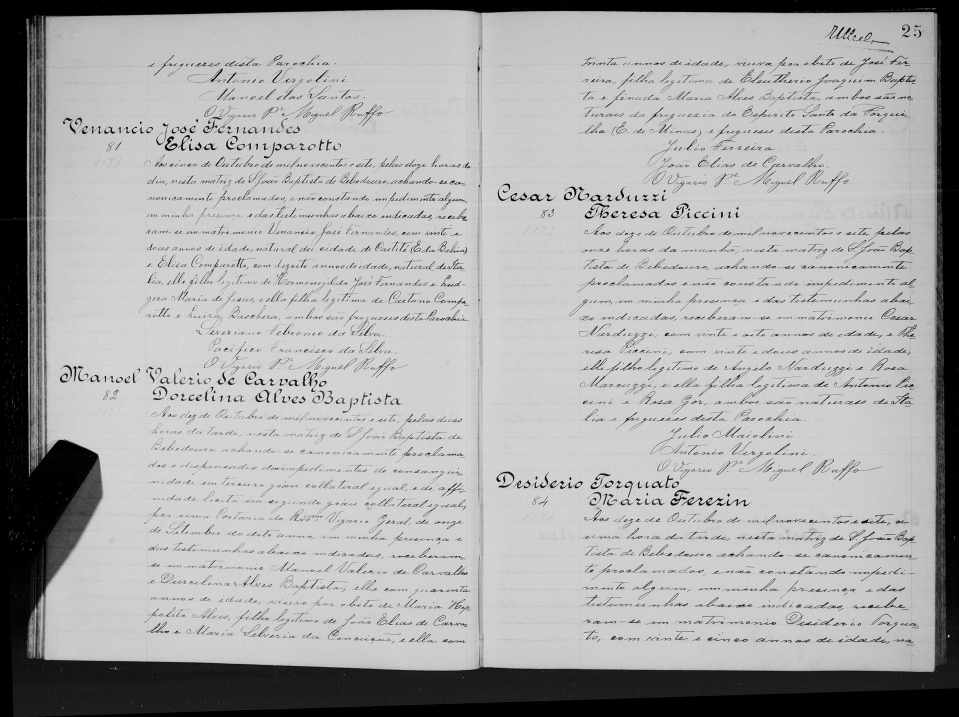 e freguezes desta Parochia.
Antonio Vergolini
Manoel dos Santos.
O Vigario Pe. Miguel Ruffo
Venancio José Fernandes
81 Elisa Comparotto
Aos cinco de Outubro de mil novecentos e sete, pelas doze horas do
dia, nesta matriz de S. João Baptista de Bebedouro, achando-se ca-
nonicamente proclamados, e não constando impedimento algum,
em minha presença e das testemunhas abaixo indicadas, recebe-
ram-se no matrimonio Venancio José Fernandes, com vinte e
dous annos de idade, natural da cidade de (E. da Bahia)
e Elisa Comparotto, com dezoito annos de idade, natural da Ita-
lia, elle filho legitimo de Hermenegildo José Fernandes e
Maria de Jesus, e ella filha legitima de Caetano Compa-
rotto e Luiza Buschera, ambos são freguezes desta Parochia
Severiano Febronio da Silva.
Pacifico Francisco da Silva.
O Vigario Pe. Miguel Ruffo
Manoel Valerio de Carvalho
82 Dorcelina Alves Baptista
Aos doze de Outubro de mil novecentos e sete, pelas duas
horas da tarde, nesta matriz de S. João Baptista de
Bebedouro achando-se canonicamente proclama-
dos e dispensados do impedimentos de consangui-
nidade em terceiro gráu collateral egual, e de affi-
nidade licita em segundo gráu collateral egual,
por uma Portaria do Revmo. Vigario Geral, de onze
de Setembro do dito anno em minha presença e
das testemunhas abaixo indicadas, receberam-
se em matrimonio Manoel Valerio de Carvalho
e Durcelina Alves Baptista, elle com quarenta
annos de idade, viuvo por obito de Maria Hyp-
polita Alves, filho legitimo de João Elias de Carva-
lho e Maria Silveria da Conceição, e ella com
25
trinta annos de idade, viuva por obito de José Fer-
reira, filha legitima de Eleutherio Joaquim Baptis-
ta e finada Maria Alves Baptista, ambos são na-
turaes da freguezia do Espirito Santo da Forqui-
lha (E. de Minas), e freguezes desta Parochia.
Julio Ferreira
João Elias de Carvalho.
O Vigario Pe. Miguel Ruffo
Cesar Narduzzi
83 Theresa Piccini
Aos doze de Outubro de mil novecentos e sete, pelas
onze horas da manhã, nesta matriz de S. João Bap-
tista de Bebedouro, achando-se canonicamente
proclamados e não constando impedimento al-
gum, em minha presença e das testemunhas abai-
xo indicadas, receberam-se em matrimonio Cesar
Narduzzi, com vinte e sete annos de idade, e The-
resa Piccini, com vinte e dous annos de idade,
elle filho legitimo de Angelo Narduzzi e Rosa
Marcuzzi, e ella filha legitima de Antonio Pic-
cini e Rosa Gor, ambos são naturaes da Ita-
lia e freguezes desta Parochia.
Julio Maiolini
Antonio Vergolini
O Vigario Pe. Miguel Ruffo
Desiderio Torquato
84 Maria Ferezin
Aos doze de Outubro de mil novecentos e sete, á
uma hora da tarde, nesta matriz de S. João Bap-
tista de Bebedouro achando-se canonicamen-
te proclamados, e não constando impedi-
mento algum, em minha presença e das
testemunhas abaixo indicadas, recebe-
ram-se em matrimonio Desiderio Torqua-
to, com vinte e cinco annos de idade, na-